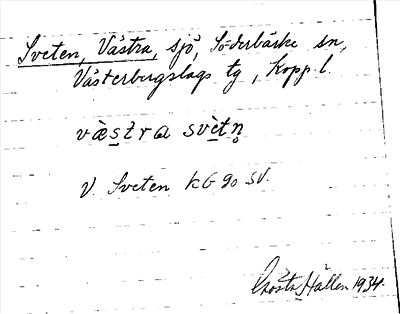 Sveten, Västra, sjö, Söderbärke sn,
Västerbergslags tg, Kopp. l.
væ̀stra svètn̥
V. Sveten KG 90 SV.
Gösta Hällen 1934.